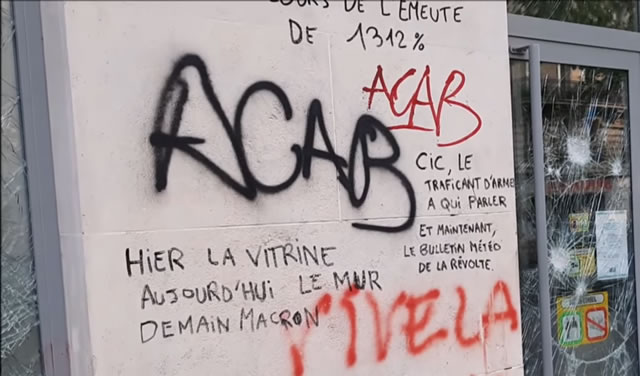 COURS DE L'ÉMEUTE
DE 1312%
ACAB
ACAB
CIC, LE
TRAFICANT D'ARME
A QUI PARLER
ET MAINTENANT,
LE BULLETIN MÉTÉO
DE LA RÉVOLTE.
HIER LA VITRINE
AUJOURD'HUI LE MUR
DEMAIN MACRON
VIVE LA